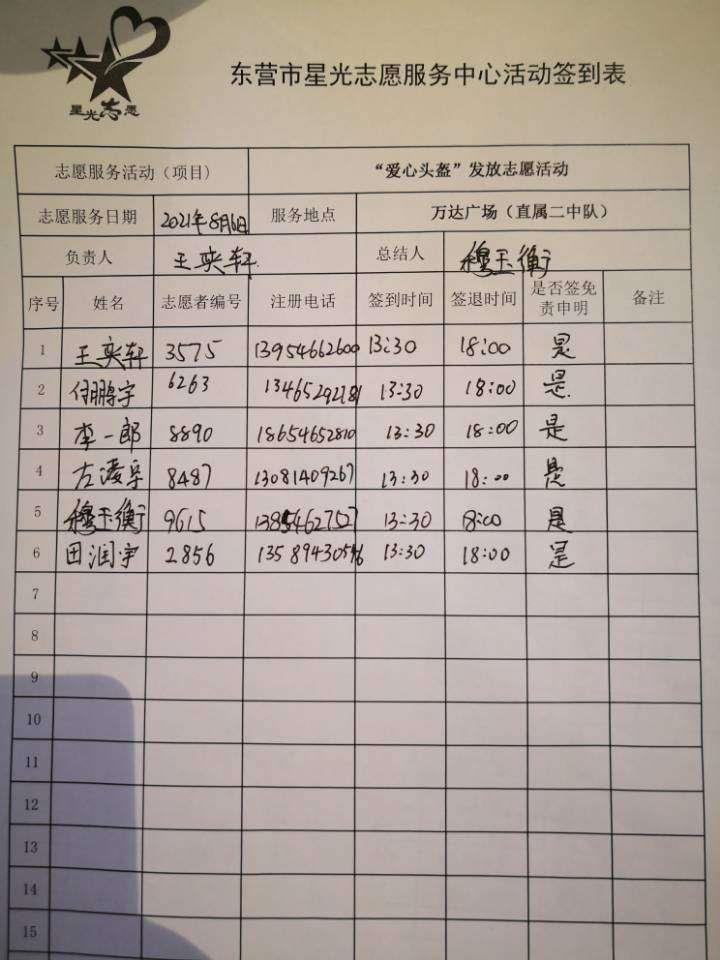 星光志愿
东营市星光志愿服务中心活动签到表
志愿服务活动（项目） “爱心头盔”发放志愿活动
志愿服务日期 2021年8月6日 服务地点 万达广场（直属二中队）
负责人 王奕轩 总结人 穆玉衡
序号 姓名 志愿者编号 注册电话 签到时间 签退时间 是否签免责申明 备注
1 王奕轩 3575 13954662600 13:30 18:00 是
2 付鹏宇 6263 13:30 18:00 是
3 李一郎 8890 18654652810 13:30 18:00 是
4 8487 13081409267 13:30 18:00 是
5 穆玉衡 9615 13854627527 13:30 18:00 是
6 田润宇 2856 13:30 18:00 是
7
8
9
10
11
12
13
14
15